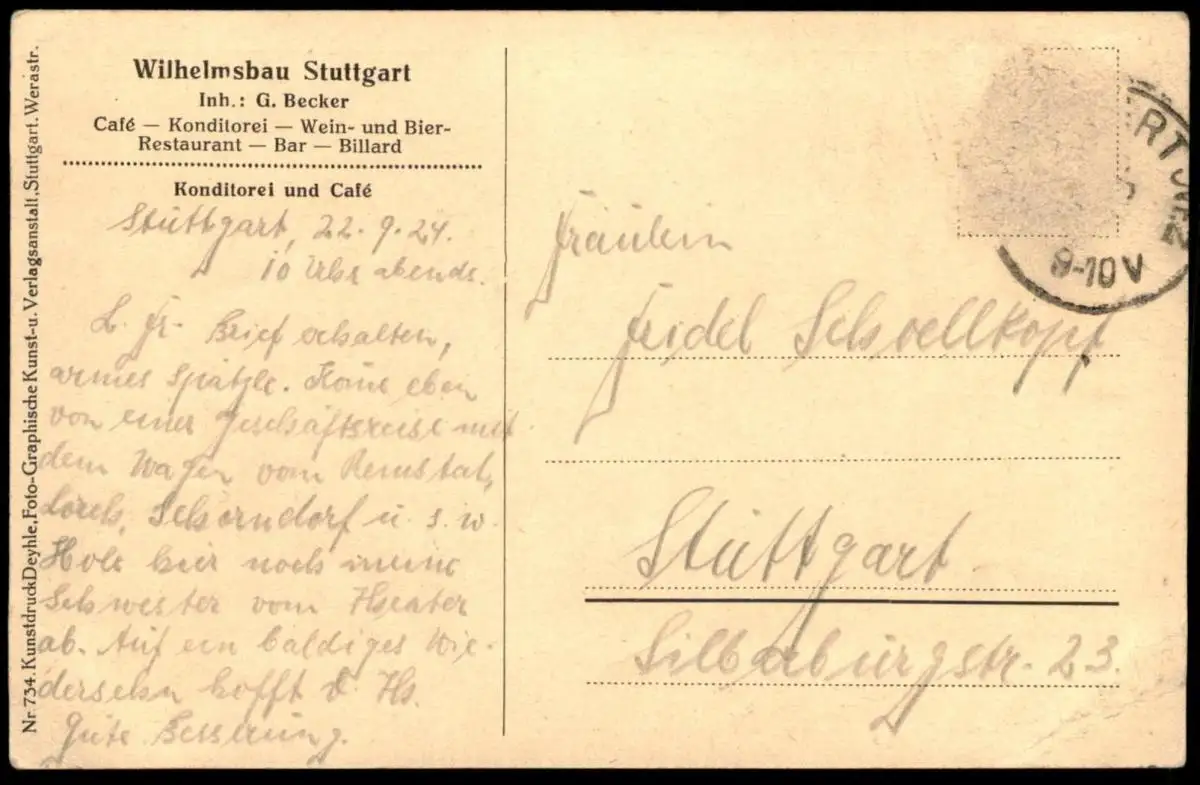 Wilhelmsbau Stuttgart
Inh.: G. Becker
Café — Konditorei — Wein- und Bier-
Restaurant — Bar — Billard
Konditorei und Café
Stuttgart, 22.9.24.
10 Uhr abends.
L. Fr. Brief erhalten,
armes Spätzle. Kome eben
von einer Geschäftsreise mit
dem Wagen vom Remstal,
Lorch, Schorndorf u. s. w.
Hole hier noch meine
Schwester vom Theater
ab. Auf ein baldiges Wie-
dersehn hofft d. Hs.
Gute Besserung.
Nr. 734. Kunstdruck Deyhle, Foto-Graphische Kunst- u. Verlagsanstalt, Stuttgart. Werastr.
RT
9-10 V
Fräulein
Friedel Schoellkopf
Stuttgart
Silberburgstr. 23.